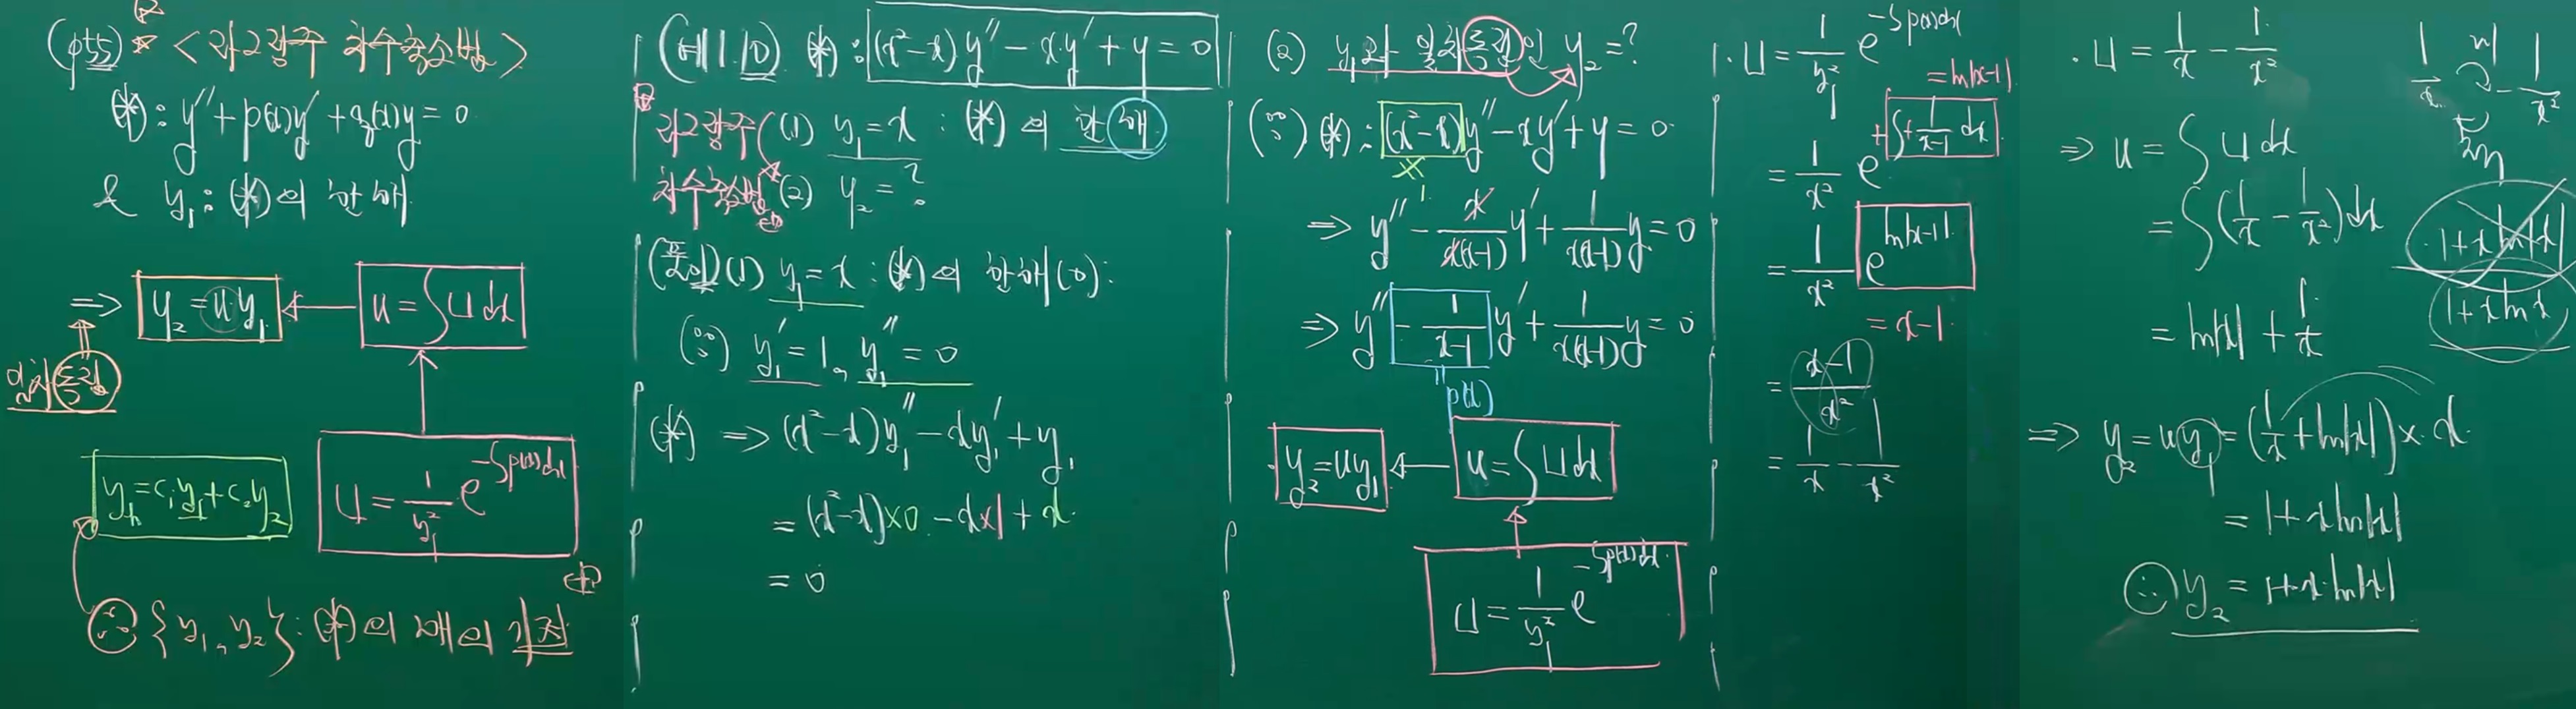 (p55) <라그랑주 차수축소법>
(*): y'' + p(x)y' + q(x)y = 0
& y₁: (*)의 한 해
⇒ y₂ = u y₁ ← u = ∫U dx
일차독립
y_h = c₁y₁ + c₂y₂
U = 1/y₁² e^(-∫p(x)dx)
∴ {y₁, y₂}: (*)의 해의 기저
(예1.10) (*): (x²-x)y'' - x·y' + y = 0
라그랑주 (1) y₁ = x : (*)의 한 해
차수축소법 (2) y₂ = ?
(풀이) (1) y₁ = x : (*)의 한 해(0):
(∵) y₁' = 1, y₁'' = 0
(*) ⇒ (x²-x)y₁'' - xy₁' + y₁
= (x²-x)×0 - x×1 + x
= 0
(2) y₁과 일차독립인 y₂ = ?
(∵) (*): (x²-x)y'' - xy' + y = 0
⇒ y'' - x/x(x-1) y' + 1/x(x-1) y = 0
⇒ y'' - 1/(x-1) y' + 1/x(x-1) y = 0
" p(x)
y₂ = uy₁ ← u = ∫U dx
U = 1/y₁² e^(-∫p(x)dx)
· U = 1/y₁² e^(-∫p(x)dx)
= ln|x-1|
= 1/x² e^(+∫+1/(x-1) dx)
= 1/x² e^(ln|x-1|)
= x-1
= (x-1)/x²
= 1/x - 1/x²
· U = 1/x - 1/x²
⇒ u = ∫U dx
= ∫(1/x - 1/x²)dx
= ln|x| + 1/x
⇒ y₂ = uy₁ = (1/x + ln|x|)×x
= 1 + x ln|x|
∴ y₂ = 1 + x·ln|x|
1/x - 1/x²
1 + x ln|x|
1 + x ln x